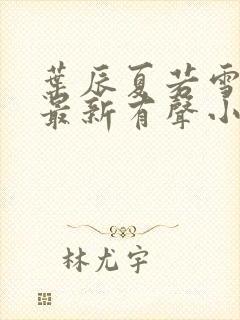 葉辰夏若雪
最新有聲小
林尤宇